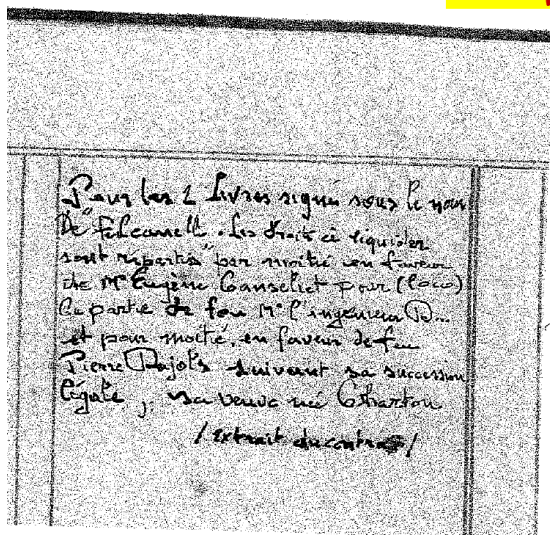 Pour les 2 Livres signés sous le nom
De "Fulcanelli". les droits à liquider
sont répartis "par moitié en faveur
de Mr Eugène Canseliet pour (loco)
la partie de feu Mr l'ingenieur D...
et pour moitié, en faveur de feu
Pierre Dujols suivant sa succession
légale, sa veuve née Charton
/ extrait du contrat /